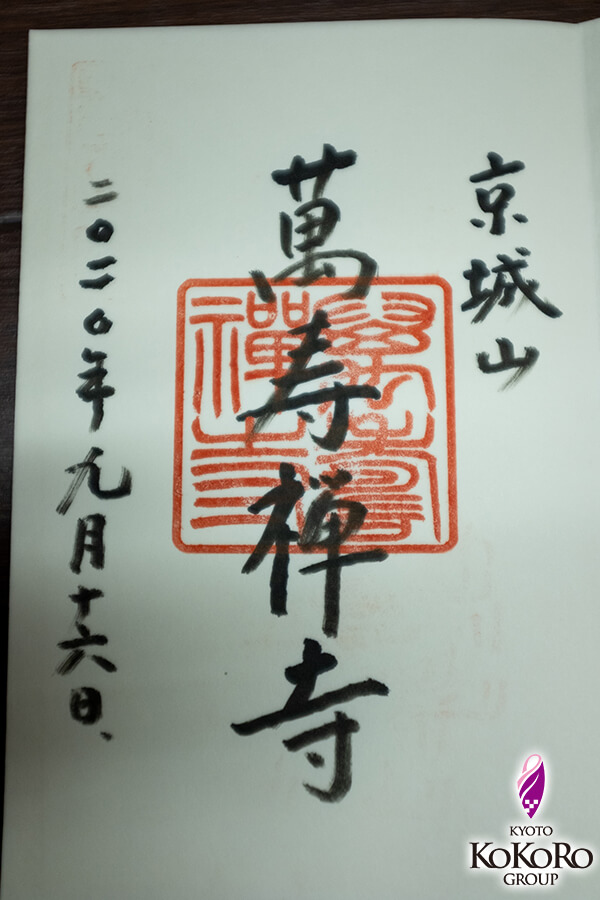 京城山
萬寿禅寺
二〇二〇年九月十六日、
萬壽
禪寺
KYOTO
KOKORO
GROUP